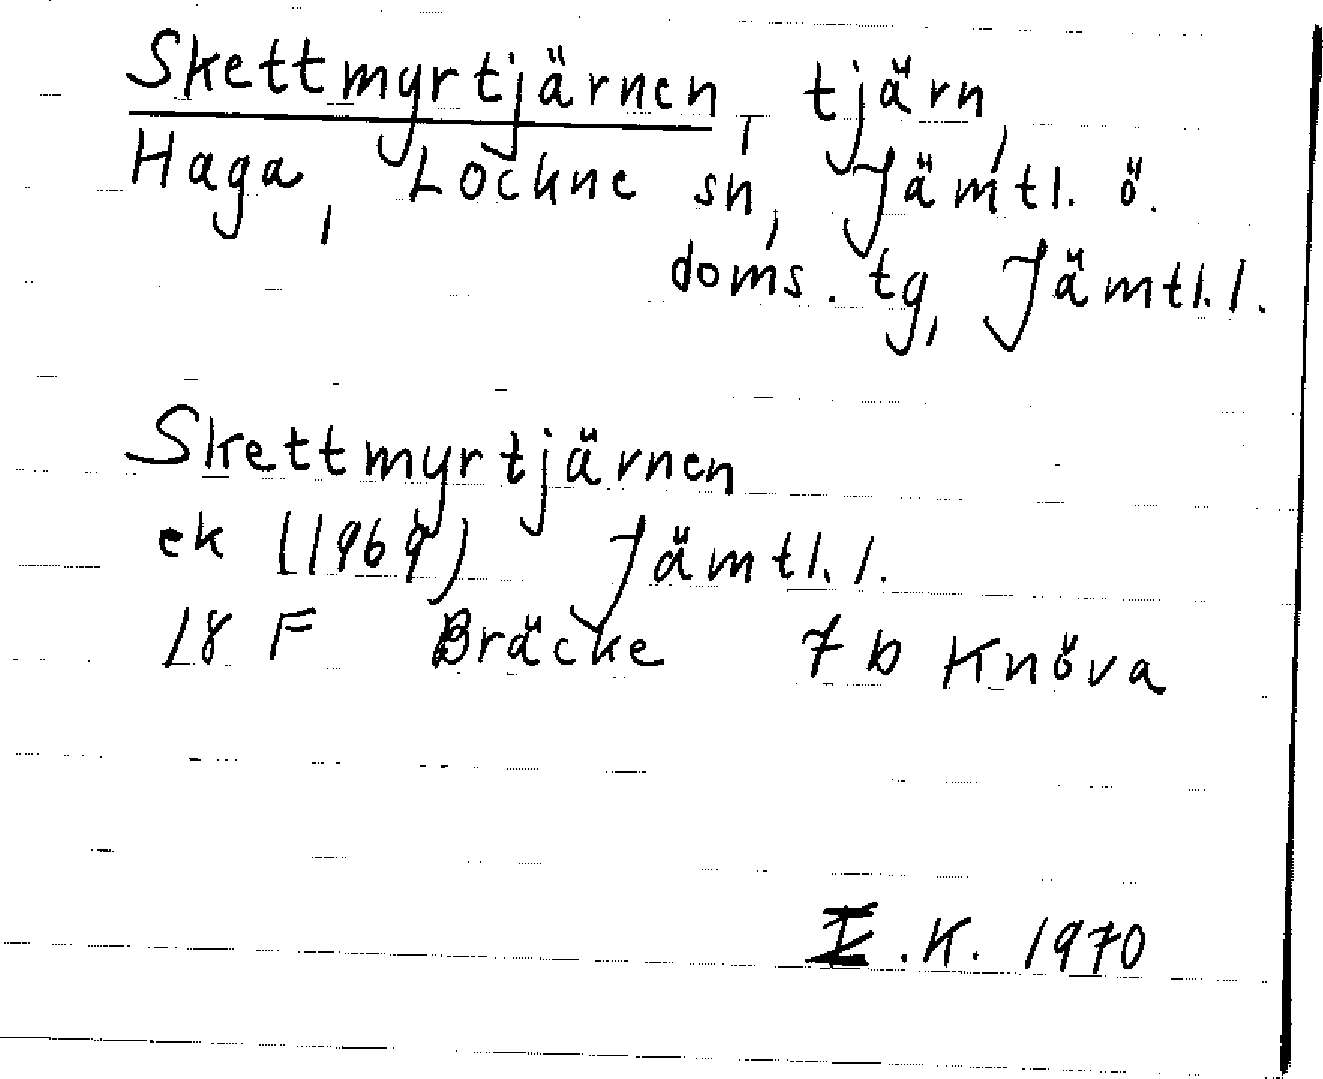 Skettmyrtjärnen, tjärn,
Haga, Lockne sn, Jämtl. ö.
doms. tg, Jämtl. l.
Skettmyrtjärnen
ek (1969) Jämtl. l.
18 F Bräcke 7 b Knöva
I.K. 1970